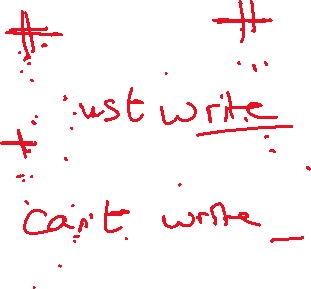 ust write
can't write _